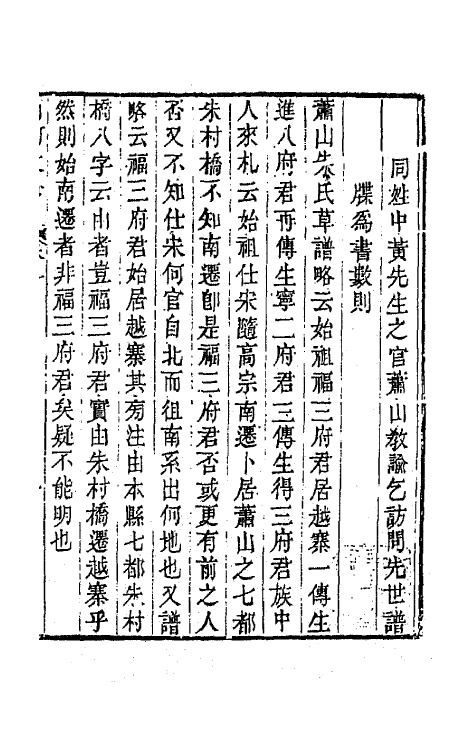 同姓中黃先生之官蕭山敎諭乞訪問先世譜
牒爲書數則
蕭山朱氏草譜略云始祖福三府君居越寨一傳生
進八府君再傳生寧二府君三傳生得三府君族中
人來札云始祖仕宋隨高宗南遷卜居蕭山之七都
朱村橋不知南遷卽是福三府君否或更有前之人
否又不知仕宋何官自北而徂南系出何地也又譜
略云福三府君始居越寨其旁注由本縣七都朱村
橋八字云由者豈福三府君實由朱村橋遷越寨乎
然則始南遷者非福三府君矣疑不能明也